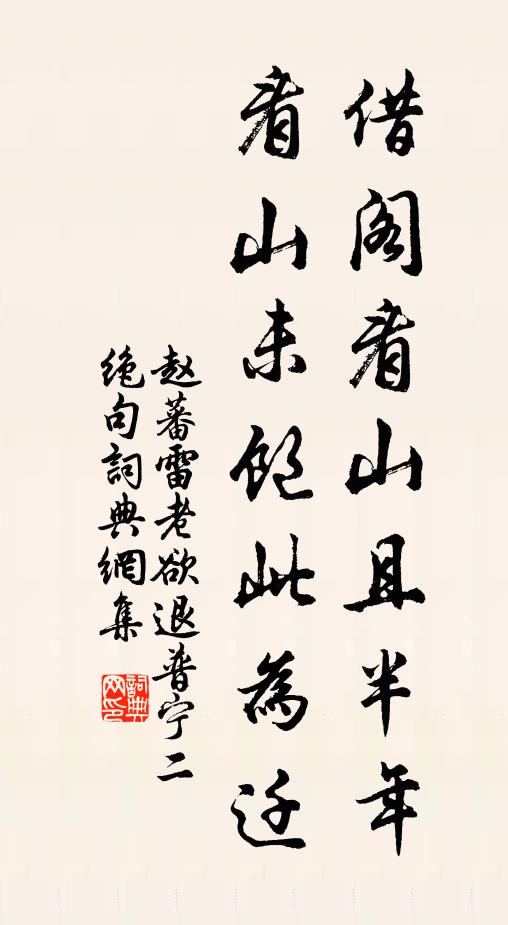 借阁看山且半年
看山未饱此為迁
赵蕃雷老欲退普宁二
绝句詞典網集
詞典网印